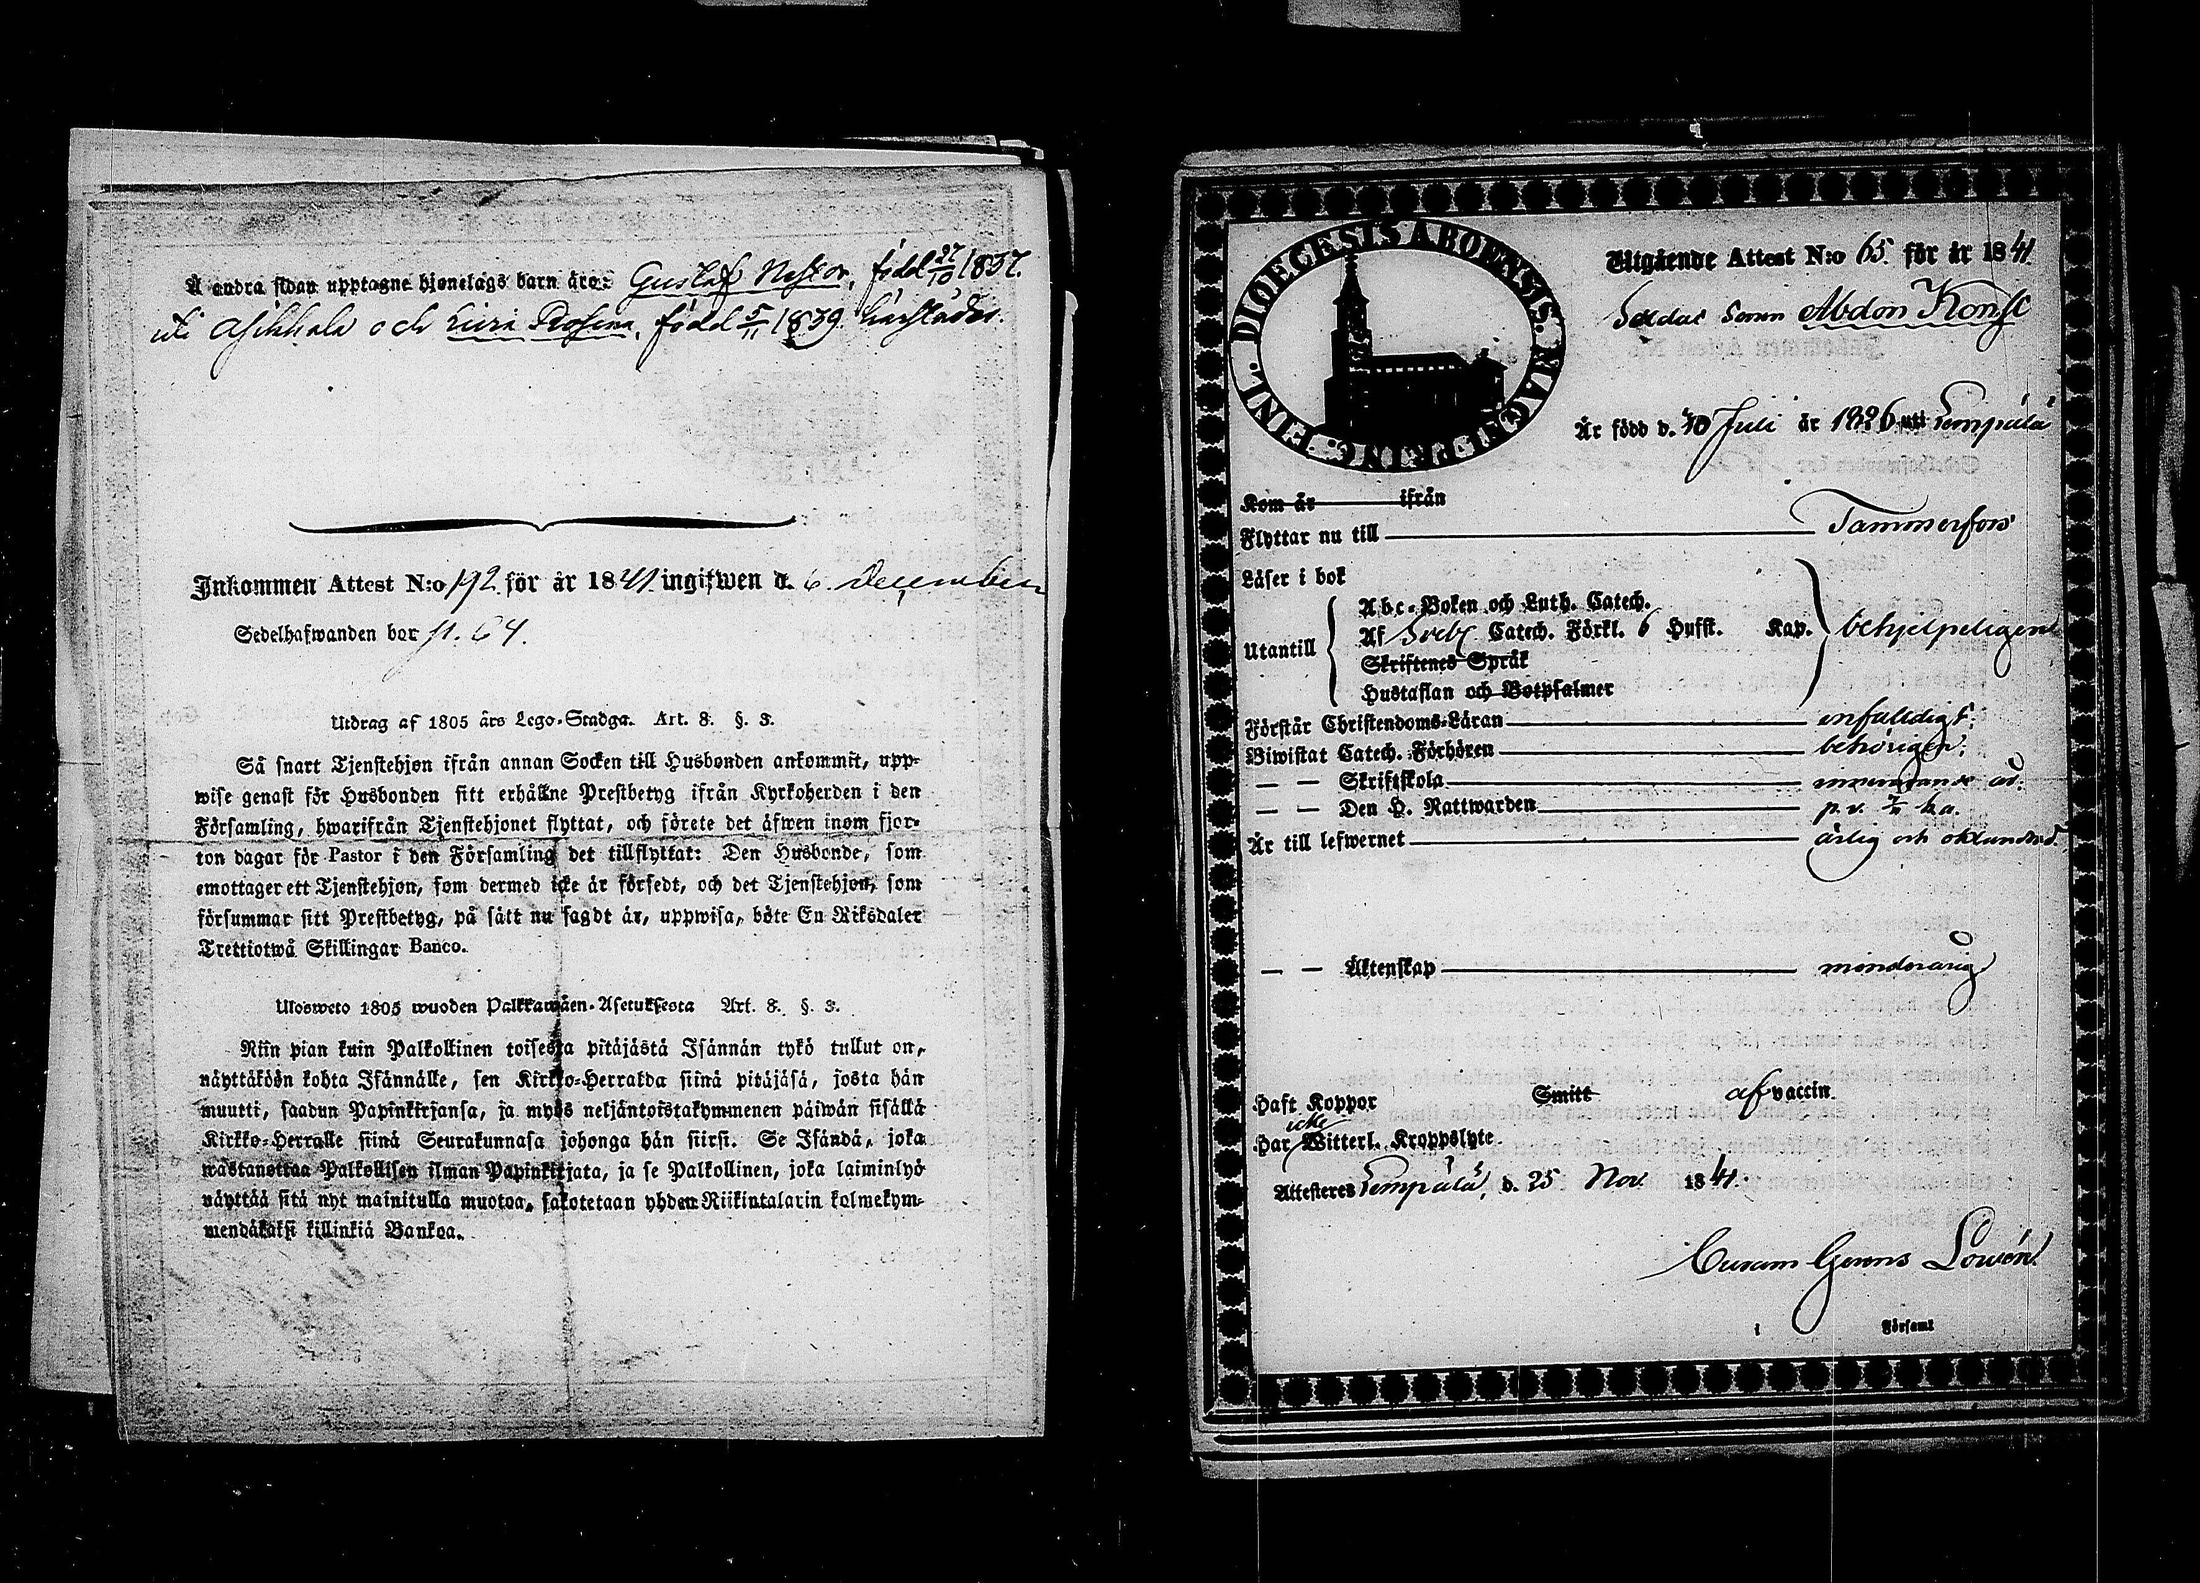 Å andra sidan upptagne hjonelags barn äro: Gustaf Nestor, född 27/10 1837.
uti Asikkala och Lisa Rosina, född 5/11 1839 härstädes.
Inkommen Attest N:o 192. för år 1841. ingifwen d. 6 December
Sedelhafwanden bor p. 64.
Utdrag af 1805 års Lego-Stadga. Art. 8. §. 3.
Så snart Tjenstehjon ifrån annan Socken till Husbonden ankommit, upp-
wise genast för Husbonden sitt erhållne Prestbetyg ifrån Kyrkoherden i den
Församling, hwarifrån Tjenstehjonet flyttat, och förete det äfwen inom fjor-
ton dagar för Pastor i den Församling det tillflyttat: Den Husbonde, som
emottager ett Tjenstehjon, som dermed icke är försedt, och det Tjenstehjon, som
försummar sitt Prestbetyg, på sätt nu sagdt är, uppwisa, böte En Riksdaler
Trettiotwå Skillingar Banco.
Ulosweto 1805 wuoden Palkkawäen-Asetuksesta Art. 8. §. 3.
Niin pian kuin Palkollinen toisesta pitäjästä Isännän tykö tullut on,
näyttäköön kohta Isännälle, sen Kirkko-Herralda siinä pitäjäsä, josta hän
muutti, saadun Papinkirjansa, ja myös neljäntoistakymmenen päiwän sisällä
Kirkko-Herralle siinä Seurakunnasa johonga hän siirsi. Se Isändä, joka
wastanottaa Palkollisen ilman Papinkirjata, ja se Palkollinen, joka laiminlyö
näyttää sitä nyt mainitulla muotoa, sakotetaan yhden Riikintalarin kolmekym-
mendäkaksi killinkiä Bankoa.
DIOECESIS ABOENSIS. MAGNI PRINC. FINL.
Utgående Attest N:o 65. för år 1841
Soldat Sonen Abdon Konst
Är född d. 30 Juli år 1826 uti Lempälä
Kom år ifrån
Flyttar nu till Tammerfors
Läser i bok
Utantill
Abc-Boken och Luth. Catech.
Af Sveb. Catech. Förkl. 6 Hufst. Kap. behjelpeligen
Skriftenes Språk
Hustaflan och Botpsalmer
Förstår Christendoms-Läran enfaldigt.
Biwistat Catech. Förhören behörigen.
— — Skriftskola innewarande år.
— — Den H. Nattwarden
Är till lefwernet ärlig och oklandrad.
— — Äktenskap minderårig
Haft Koppor Smitt af vaccin.
icke
Har Witterl. Kroppslyte
Attesteres Lempälä, d. 25 Nov. 1841.
Curam Gerens
i Församl